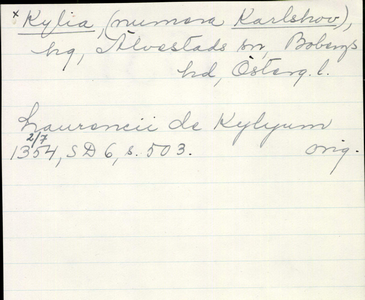 × Kylia, (numera Karlshov),
hg, Alvastads sn, Bobergs
hd, Österg. l.
Laurencii de Kylyum
2/7
1354, SD 6, s. 503. orig.